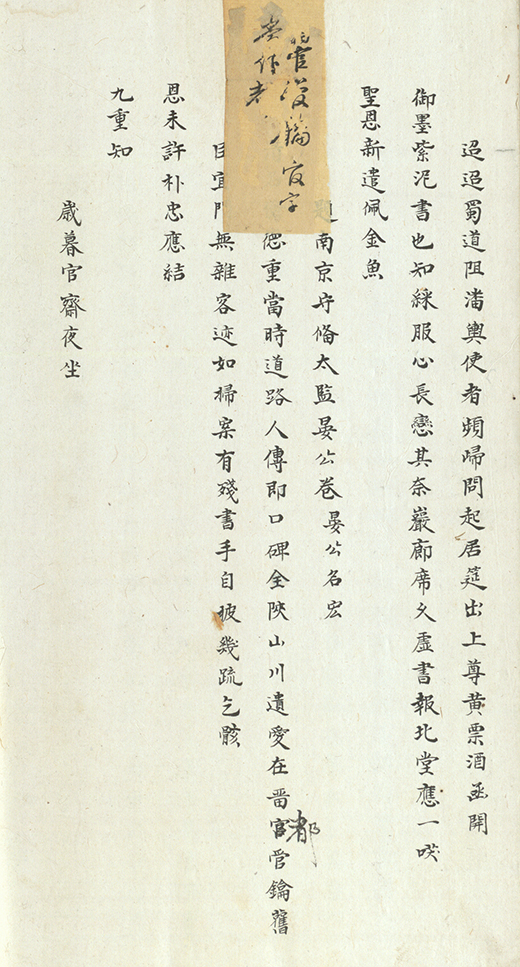 迢迢蜀道阻潘輿使者頻歸問起居筵出上尊黄票酒函開
御墨紫泥書也知綵服心長戀其奈巖廊席久虛書報北堂應一咲
聖恩新遣佩金魚
南京守俻太監晏公卷晏公名宏
德重當時道路人傳即口碑全陜山川遺愛在畱宮管鑰舊
都
臣宜門無雜客迹如掃案有殘書手自披幾疏乞骸
恩未許朴忠應結
九重知
歲暮官齋夜坐